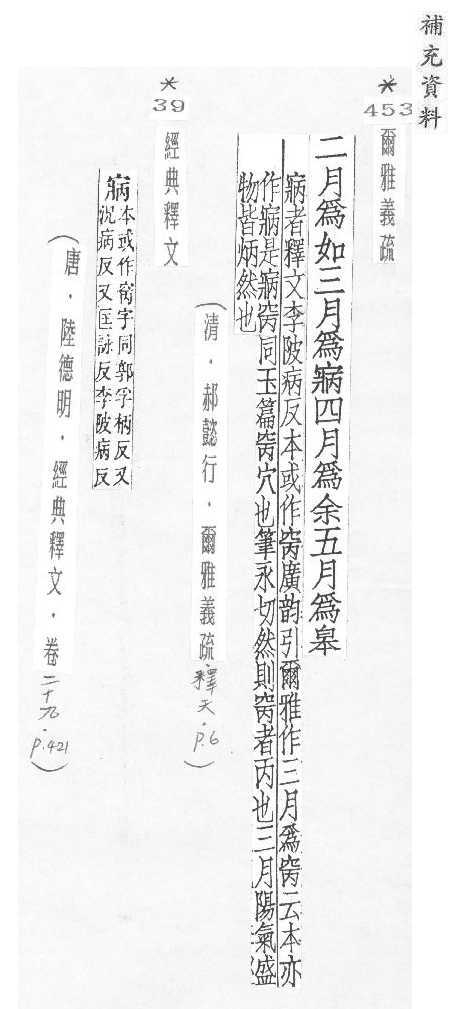 補充資料
*
453
爾雅義疏
二月爲如三月爲寎四月爲余五月爲皋
寎者釋文李陂病反本或作窉廣韵引爾雅作三月爲窉云本亦
作寎是寎窉同玉篇窉穴也筆永切然則窉者丙也三月陽氣盛
物皆炳然也
(清．郝懿行．爾雅義疏．釋天．p.6)
*
39
經典釋文
寎本或作窉字同郭孚柄反又
況病反又匡詠反李陂病反
(唐．陸德明．經典釋文．卷二十九．p.421)